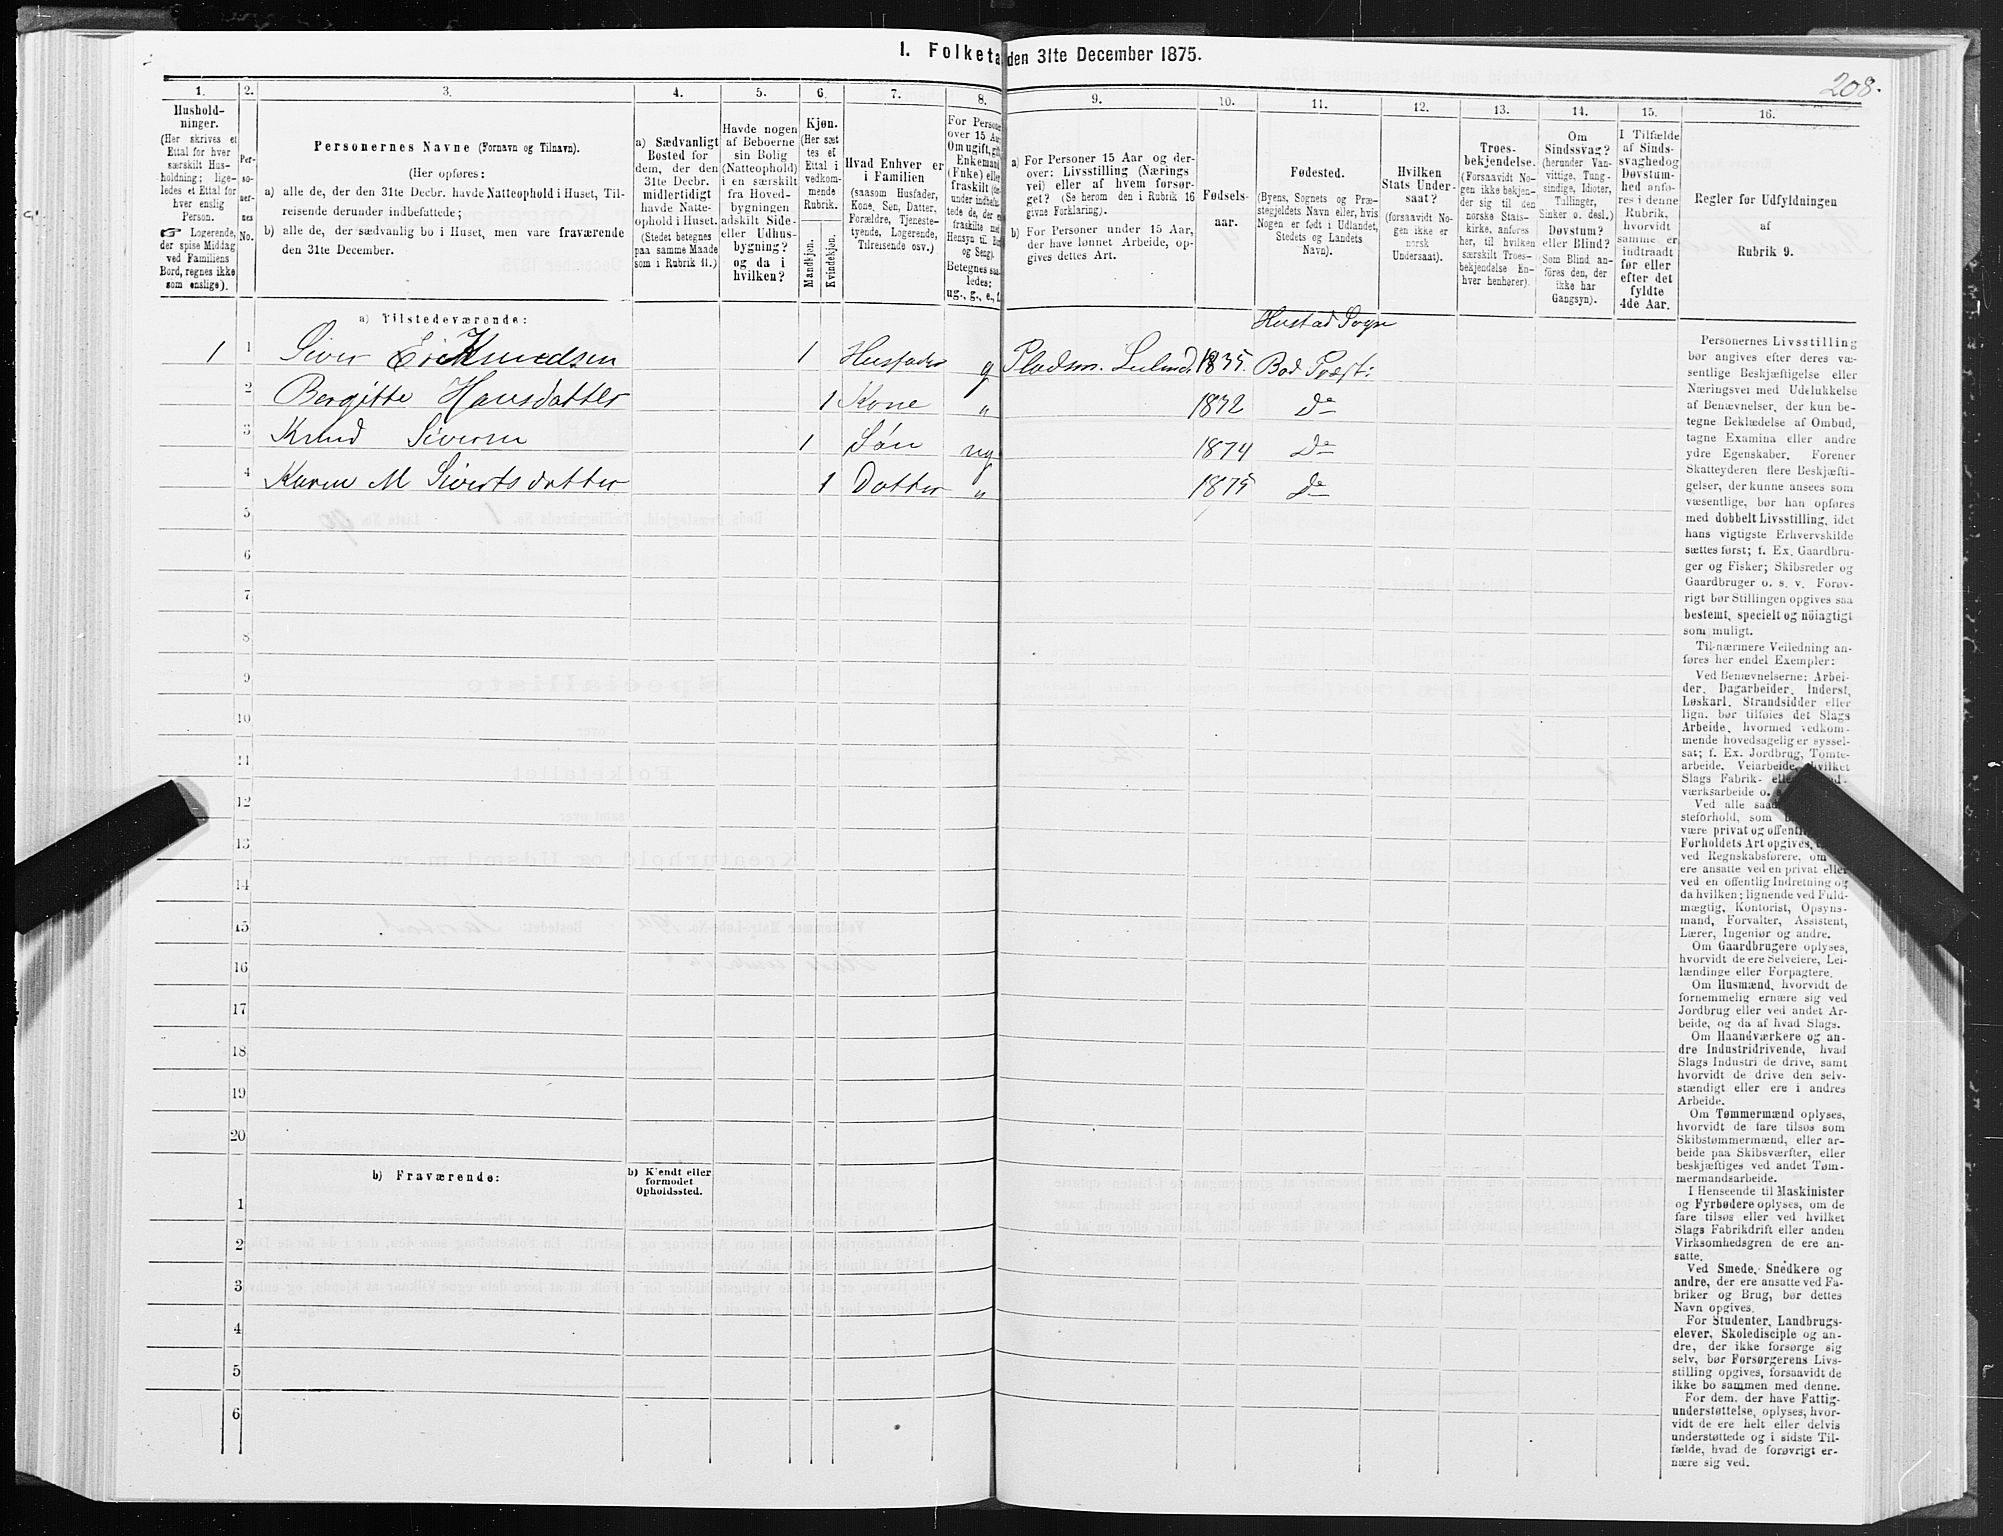 1. Folketa den 31te December 1875.
208.
1. 2. 3. 4. 5. 6. 7. 8. 9. 10. 11. 12. 13. 14. 15. 16.
Hushold-
ninger.
(Her skrives et
Ettal for hver
særskilt Hus-
holdning; lige-
ledes et Ettal for
hver enslig
Person.
☞ Logerende,
der spise Middag
ved Familiens
Bord, regnes ikke
som enslige).
Per-
so-
ner-
nes
No.
Personernes Navne (Fornavn og Tilnavn).
(Her opføres:
a) alle de, der den 31te Decbr. havde Natteophold i Huset, Til-
reisende derunder indbefattede;
b) alle de, der sædvanlig bo i Huset, men vare fraværende
den 31te December.
a) Sædvanligt
Bosted for
dem, der den
31te Decbr.
midlertidigt
havde Natte-
ophold i Huset.
(Stedet betegnes
paa samme Maade
som i Rubrik 11.)
Havde nogen
af Beboerne
sin Bolig
(Natteophold)
i en særskilt
fra Hoved-
bygningen
adskilt Side-
eller Udhus-
bygning?
og da i
hvilken?
Kjøn.
(Her sæt-
tes et
Ettal i
vedkom-
mende
Rubrik.
Mandkjøn.
Kvindekjøn.
Hvad Enhver er
i Familien
(saasom Husfader,
Kone, Søn, Datter,
Forældre, Tjeneste-
tyende, Logerende,
Tilreisende osv.)
For Persone
over 15 Aa
Om ugift, gi
Enkemand
(Enke) elle
fraskilt
under indbefat-
tede de, der
fraskilte me
Hensyn til Bo
og Seng).
Betegnes saa
ledes:
ug., g., e., f.
a) For Personer 15 Aar og der-
over: Livsstilling (Nærings
vei) eller af hvem forsør-
get? (Se herom den i Rubrik 16
givne Forklaring).
b) For Personer under 15 Aar,
der have lønnet Arbeide, op-
gives dettes Art.
Fødsels-
aar.
Fødested.
(Byens, Sognets og Præ-
stegjeldets Navn eller, hvis
Nogen er født i Udlandet,
Stedets og Landets
Navn).
Hvilken
Stats Under-
saat?
(forsaavidt No-
gen ikke er
norsk
Undersaat).
Troes-
bekjendelse.
(Forsaavidt No-
gen ikke bekjen-
der sig til den
norske Stats-
kirke, anføres
her, til hvilken
særskilt Troes-
bekjendelse En-
hver henhører).
Om
Sindssvag?
(herunder Van-
vittige, Tung-
sindige, Idioter,
Tullinger,
Sinker o. desl.)
Døvstum?
eller Blind?
(Som Blind an-
føres den, der
ikke har
Gangsyn).
I Tilfælde
af Sinds-
svaghedog
Døvstum-
hed anfø-
res i denne
Rubrik,
hvorvidt
samme er
indtraadt
før eller
efter det
fyldte
4de Aar.
Regler for Udfyldningen
af
Rubrik 9.
a) Tilstedeværende:
Hustad Sogn
1 1 Siver Knudsen 1 Husfader g Pladsm. 1835. Bod Præst:
2 Bergitte Hansdatter 1 Kone „ 1832 Do
3 Knud Siversen 1 Søn ug 1874 Do
4 Karen M Sivertsdatter 1 Datter „ 1875 Do
5
6
7
8
9
10
11
12
13
14
15
16
17
18
19
20
b) Fraværende:
b) Kjendt eller
formodet
Opholdssted.
1
2
3
4
5
6
Personernes Livsstilling
bør angives efter deres væ-
sentlige Beskjæftigelse eller
Næringsvei med Udelukkelse
af Benævnelser, der kun be-
tegne Beklædelse af Ombud,
tagne Examina eller andre
ydre Egenskaber. Forener
Skatteyderen flere Beskjæfti-
gelser, der kunne ansees som
væsentlige, bør han opføres
med dobbelt Livsstilling, idet
hans vigtigste Erhvervskilde
sættes først; f. Ex. Gaardbru-
ger og Fisker; Skibsreder og
Gaardbruger o. s. v. Forøv-
rigt bør Stillingen opgives saa
bestemt, specielt og nöiagtigt
som muligt.
Til nærmere Veiledning an-
føres her endel Exempler:
Ved Benævnelserne: Arbei-
der, Dagarbeider, Inderst,
Løskarl, Strandsidder eller
lign. bør tilføies det Slags
Arbeide, hvormed vedkom-
mende hovedsagelig er syssel-
sat; f. Ex. Jordbrug, Tomte-
arbeide, Veiarbeide, hvilket
Slags Fabrik- elle
værksarbeide o. s
Ved alle saad
steforhold, som
være privat og offentli
Forholdets Art opgives,
ved Regnskabsførere, om
ere ansatte ved en privat eller
ved en offentlig Indretning og
da hvilken; lignende ved Fuld-
mægtig, Kontorist, Opsyns-
mand, Forvalter, Assistent,
Lærer, Ingeniør og andre.
Om Gaardbrugere oplyses,
hvorvidt de ere Selveiere, Lei-
lændinge eller Forpagtere.
Om Husmænd, hvorvidt de
fornemmelig ernære sig ved
Jordbrug eller ved andet Ar-
beide, og da af hvad Slags.
Om Haandværkere og an-
dre Industridrivende, hvad
Slags Industri de drive, samt
hvorvidt de drive den selv-
stændigt eller ere i andres
Arbeide.
Om Tømmermænd oplyses,
hvorvidt de fare tilsøs som
Skibstømmermænd, eller ar-
beide paa Skibsværfter, eller
beskjæftiges ved andet Tøm-
mermandsarbeide.
I Henseende til Maskinister
og Fyrbødere oplyses, om de
fare tilsøs eller ved hvilket
Slags Fabrikdrift eller anden
Virksomhedsgren de ere an-
satte.
Ved Smede, Snedkere og
andre, der ere ansatte ved Fa-
briker og Brug, bør dettes
Navn opgives.
For Studenter, Landbrugs-
elever, Skoledisciple og an-
dre, der ikke forsørge sig
selv, bør Forsørgerens Livs-
stilling opgives, forsaavidt de
ikke bo sammen med denne.
For dem, der have Fattig-
understøttelse, oplyses, hvor-
vidt de ere helt eller delvis
understøttede og i sidste Til-
fælde, hvad de forøvrigt er-
nære sig ved.